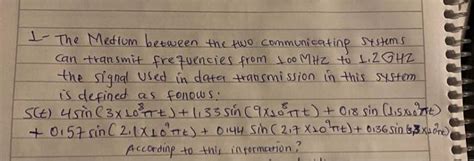 1- The Medium between the two communicating systems
can transmit frequencies from 100 MHz to 1.2 GHZ
the signal used in data transmission in this system
is defined as fonows:
S(t) 4 sin (3x10⁸πt) + 1.33 sin (9x10⁸πt) + 0.8 sin (1.5x10⁹πt)
+ 0.57 sin (2.1x10⁹πt) + 0.44 sin (2.7x10⁹πt) + 0.36 sin (3.3x10⁹πt)
According to this information?